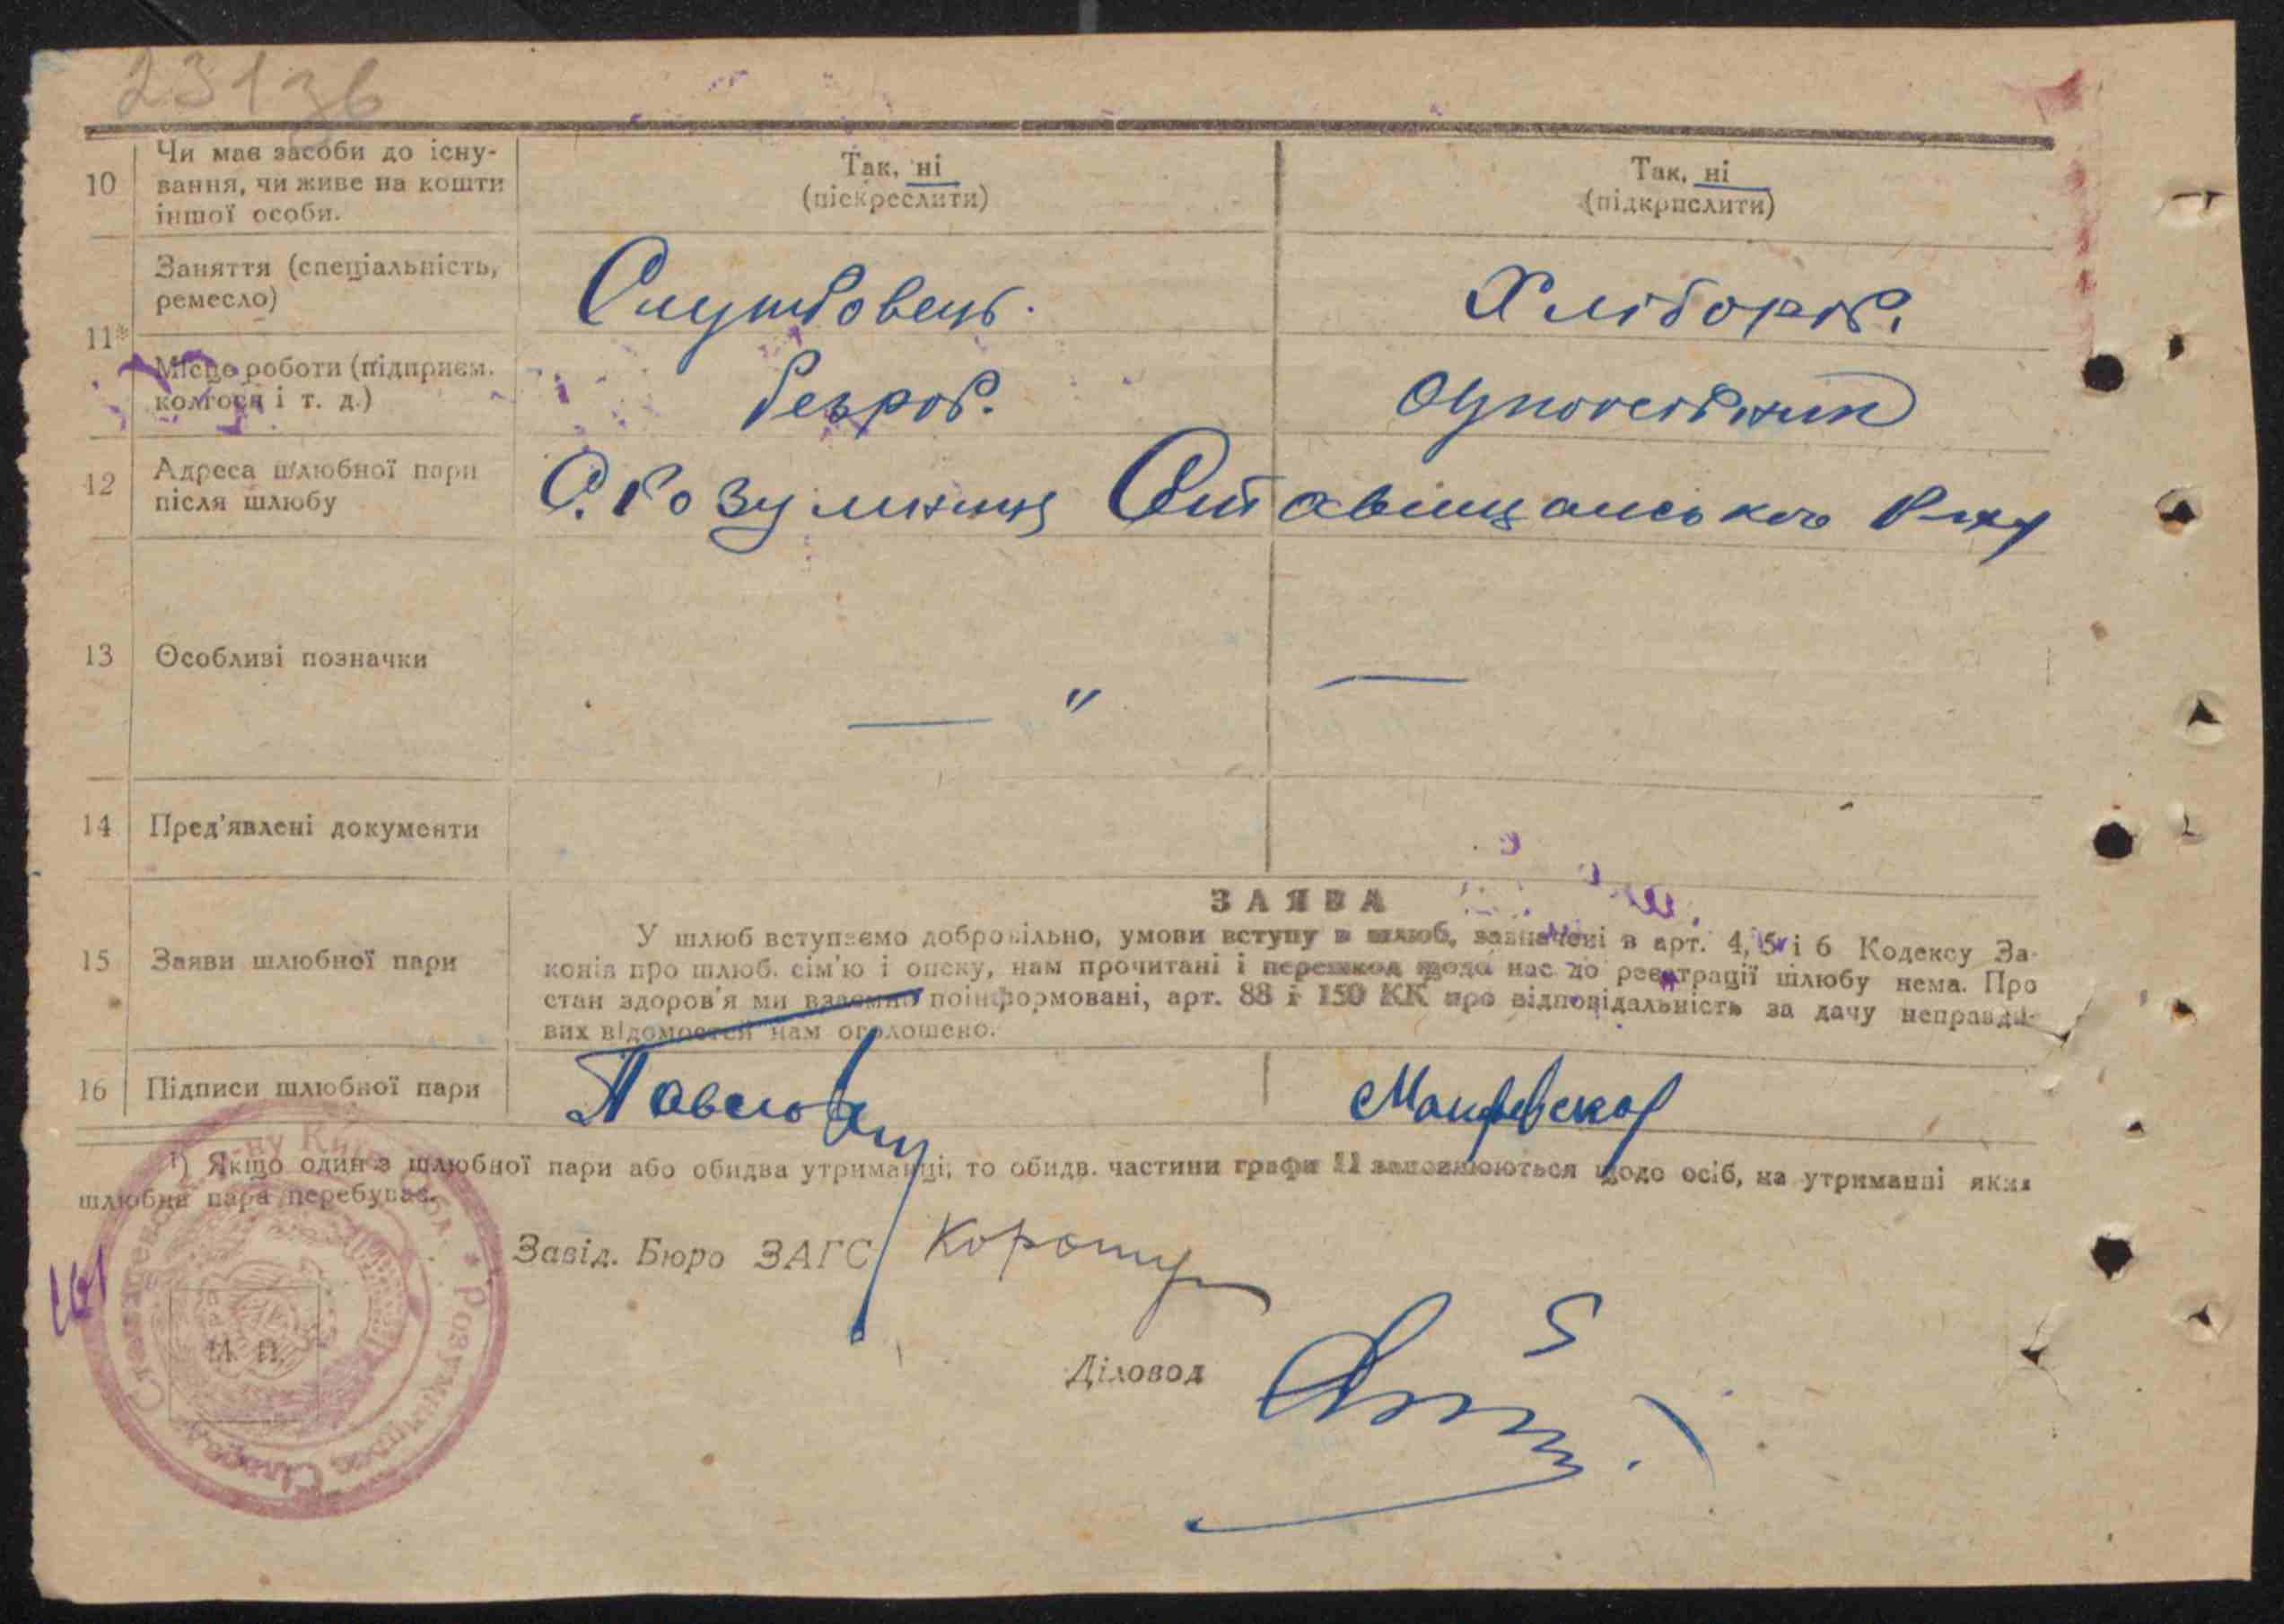 231 зв
10 Чи має засоби до існу-
вання, чи живе на кошти
іншої особи.
Так, ні
(піскреслити)
Так, ні
(підкрислити)
Заняття (спеціальність,
ремесло)
Службовець.
Хлібороб.
11*
Місце роботи (підприєм.
колгосп і т. д.)
безроб.
Одноосібник
12 Адреса шлюбної пари
після шлюбу
С. Розумниця Ставищанського р-ну
13 Особливі позначки
— " —
14 Пред'явлені документи
ЗАЯВА
15 Заяви шлюбної пари
У шлюб вступаємо добровільно, умови вступу в шлюб, зазначені в арт. 4, 5 і 6 Кодексу За-
конів про шлюб. сім'ю і опеку, нам прочитані і перешкод щодо нас до реєстрації шлюбу нема. Про
стан здоров'я ми взаємно поінформовані, арт. 88 і 150 КК про відповідальність за дачу неправди-
вих відомостей нам оголошено.
16 Підписи шлюбної пари
¹) Якщо один з шлюбної пари або обидва утриманці, то обидв. частини графи 11 заповнюються щодо осіб, на утриманні яких
шлюбна пара перебуває.
Завід. Бюро ЗАГС
М. П.
Діловод